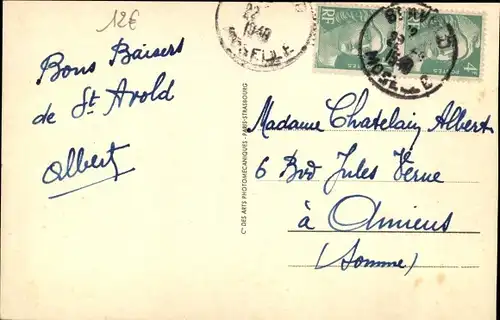 12€
22
1949
MOSELLE
RF
4F
POSTES
MOSELLE
Bons Baisers
de St Avold
Albert
Cie DES ARTS PHOTOMECANIQUES - PARIS-STRASBOURG
Madame Chatelain Albert
6 Bvd Jules Verne
à Amiens
(Somme)